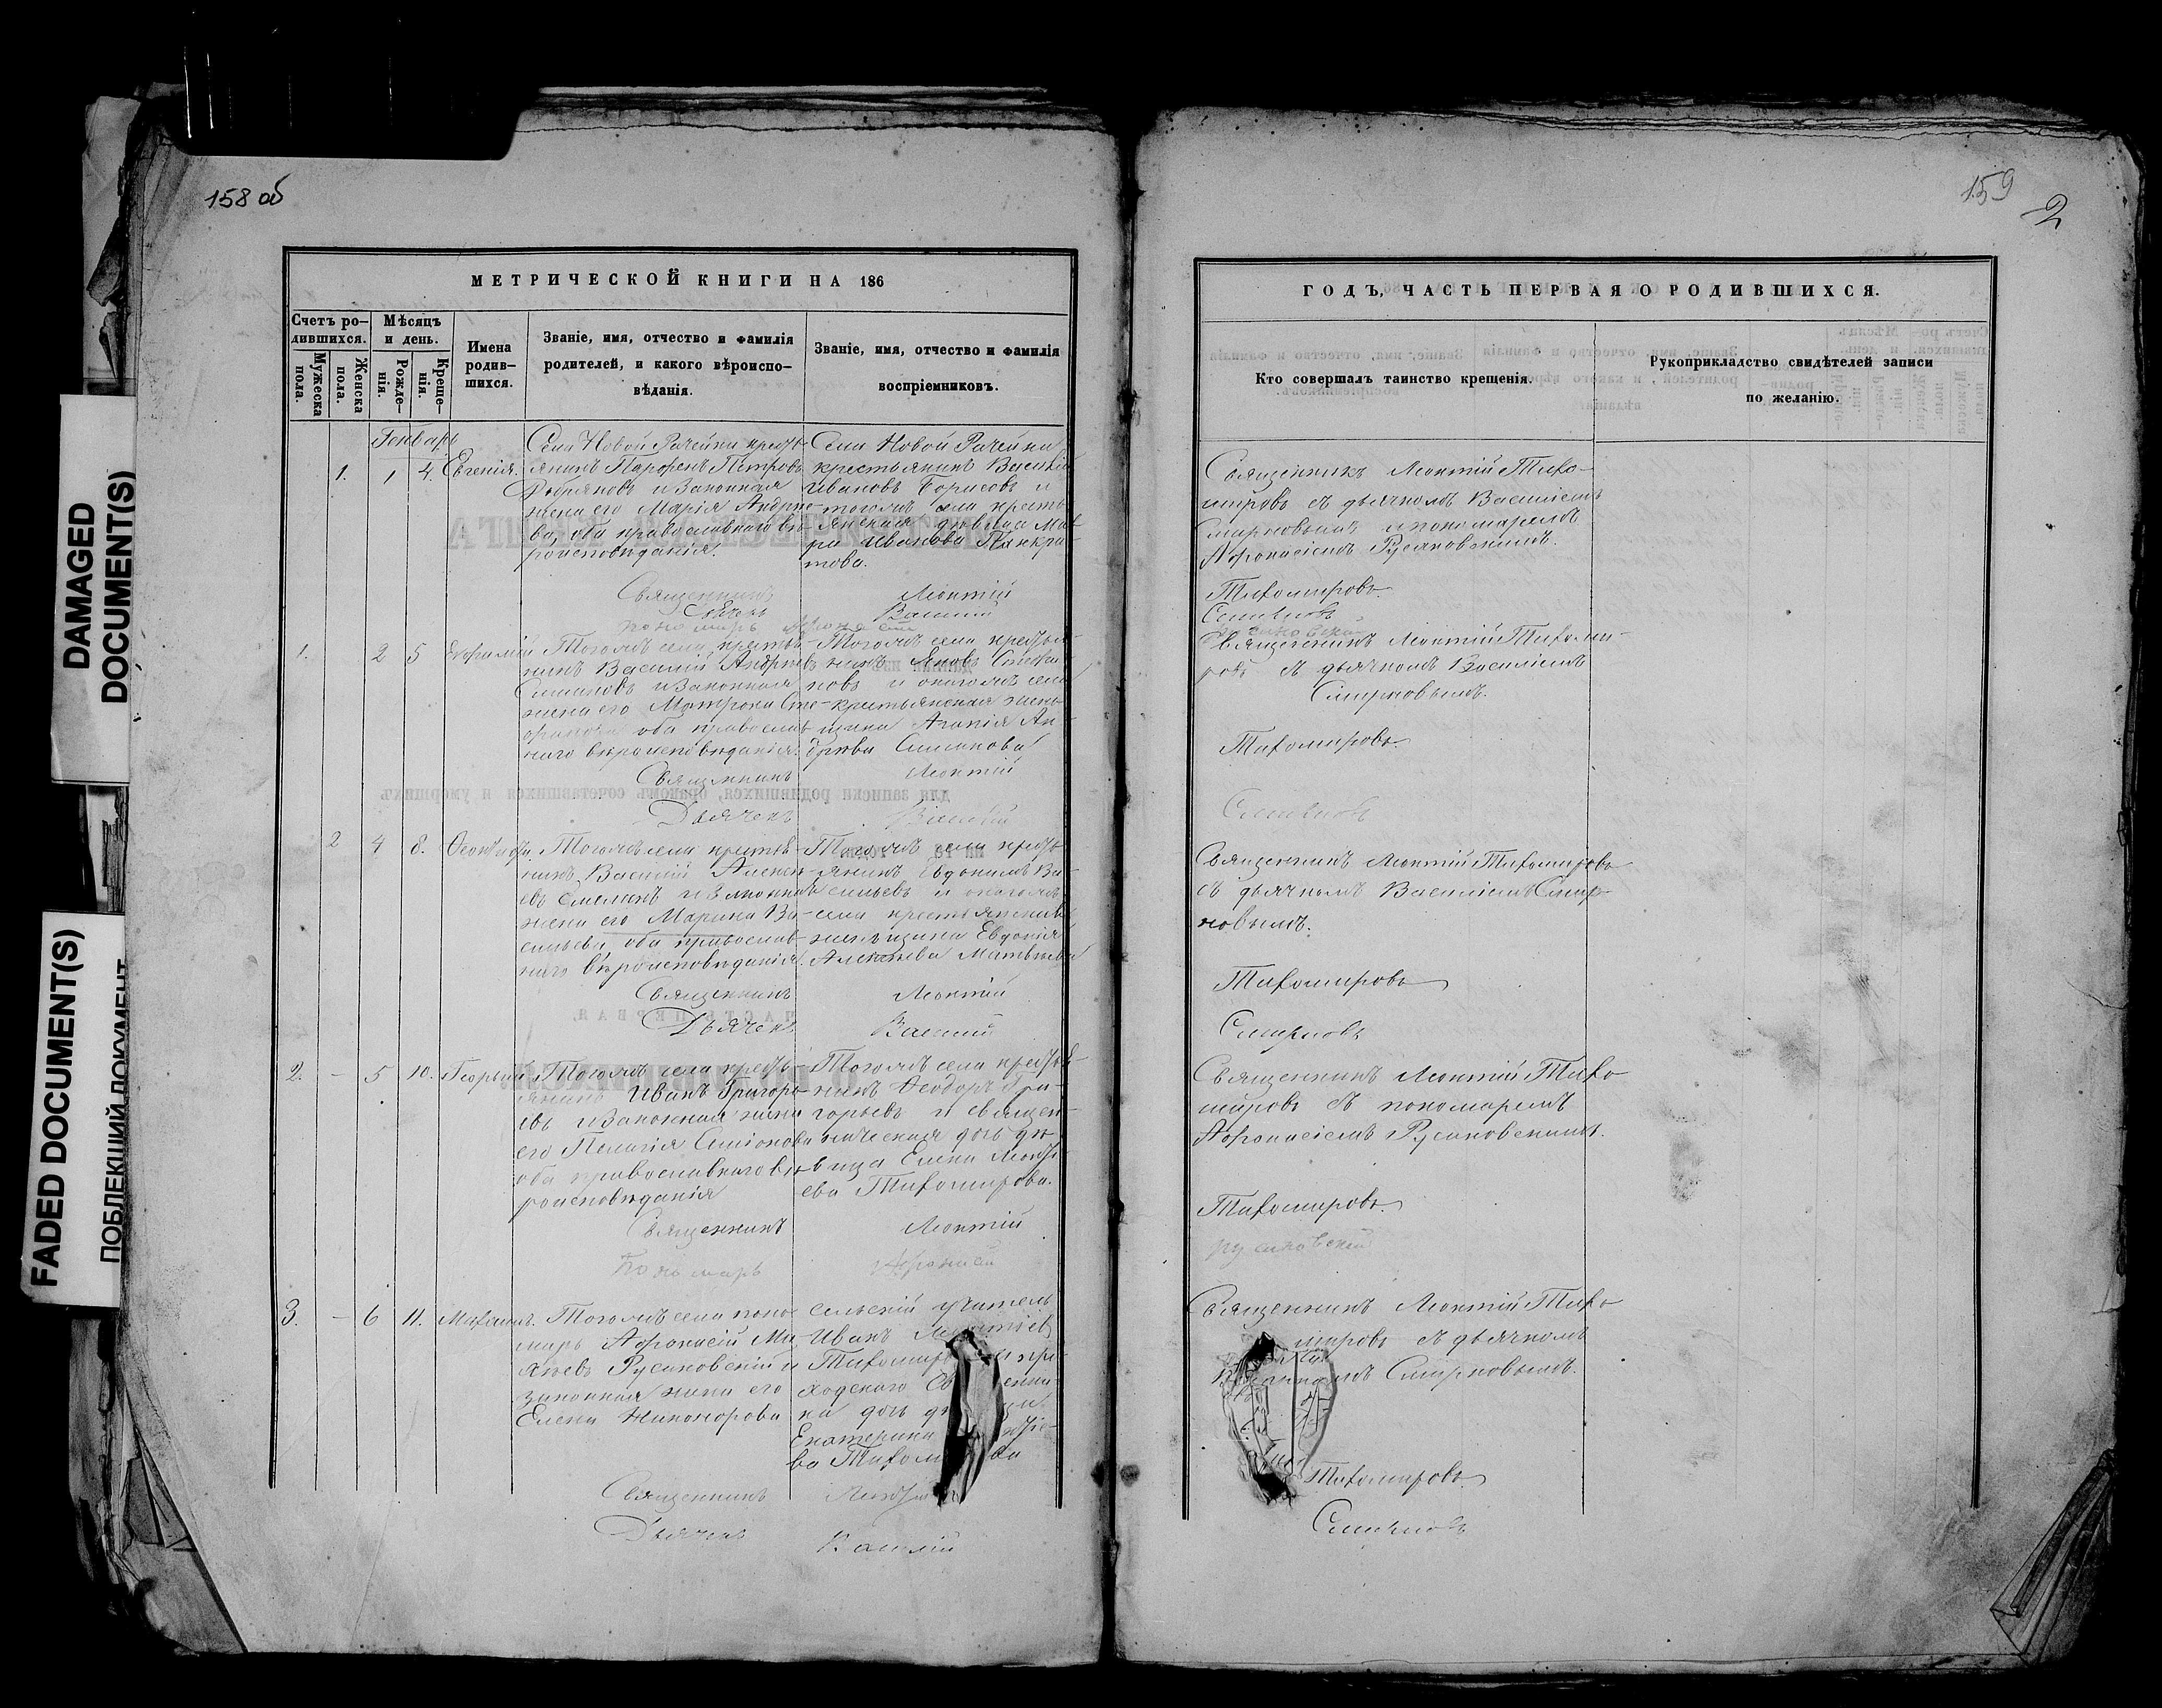 158 об
159
2
DAMAGED
DOCUMENT(S)
FADED DOCUMENT(S)
ПОБЛЕКШИЙ ДОКУМЕНТ
МЕТРИЧЕСКОЙ КНИГИ НА 186
Счетъ ро-
дившихся.
Мужеска
пола.
Женска
пола.
Мѣсяцъ
и день.
Рожде-
нія.
Креще-
нія.
Имена
родив-
шихся.
Званіе, имя, отчество и фамилія
родителей, и какого вѣроиспо-
вѣданія.
Званіе, имя, отчество и фамилія
воспріемниковъ.
Генварь
1. 1 4. Евгенія.
Села Новой Рачейки кресть-
янинъ Парфенъ Петровъ
и законная
жена его Марія Андрее-
ва, оба православнаго вѣ-
роисповѣданія.
Села Новой Рачейки
крестьянинъ Василій
Ивановъ Борисовъ и
тогожъ села кресть-
янская дѣвица Мав-
ра Иванова Панкра-
това.
Священникъ Леонтій
Дьячекъ Василій
пономарь Афонасій
1. 2 5
Тогожъ села кресть-
нинъ Василій Андреевъ
Симановъ и законная
жена его Матрона Сте-
фанова оба православ-
наго вѣроисповѣданія.
Тогожъ села крестья-
нинъ Яковъ Степа-
новъ и оногожъ села
крестьянская жен-
щина Агапія Ан-
дрѣева Симанова
Священникъ Леонтій
Дьячекъ Василій
2 4 8.
Тогожъ села крестья-
нинъ Василій Алексѣ-
евъ и законная
жена его Марина Ва-
сильева, оба православ-
наго вѣроисповѣданія.
Тогожъ села кресть-
янинъ Евдокимъ Ва-
сильевъ и оногожъ
села крестьянская
женщина Евдокія
Алексѣева Матвѣева
Священникъ Леонтій
Дьячекъ Василій
2. - 5 10. Георгій
Тогожъ села кресть-
янинъ Иванъ Григорь-
евъ и законная жена
его Пелагія Симіонова
оба православнаго вѣ-
роисповѣданія
Тогожъ села крестья-
нинъ Ѳеодоръ Гри-
горьевъ и священ-
ническая дочь дѣ-
вица Елена Леонть-
ева Тихомирова.
Священникъ Леонтій
Пономарь Афонасій
3. - 6 11. Михаилъ.
Тогожъ села поно-
марь Афонасій
Русановскій и
законная жена его
Елена Никонорова
сельскій учитель
Иванъ
и при-
ходскаго
на дочь
Екатерина
ва
Священникъ
Дьячекъ Василій
ГОДЪ, ЧАСТЬ ПЕРВАЯ О РОДИВШИХСЯ.
Кто совершалъ таинство крещенія.
Рукоприкладство свидѣтелей записи
по желанію.
Священникъ Леонтій Тихо-
мировъ съ дьячкомъ Василіемъ
Смирновымъ и пономаремъ
Афонасіемъ Русановскимъ.
Тихомировъ.
Смирновъ
Русановскій
Священникъ Леонтій Тихоми-
ровъ съ дьячкомъ Василіемъ
Смирновымъ.
Тихомировъ.
Смирновъ
Священникъ Леонтій Тихомировъ
съ дьячкомъ Василіемъ Смир-
новымъ.
Тихомировъ
Смирновъ
Священникъ Леонтій Тихо-
мировъ съ пономаремъ
Афонасіемъ Русановскимъ.
Тихомировъ.
Русановскій
Священникъ Леонтій Тихо-
мировъ съ дьячкомъ
Смирновымъ.
Тихомировъ.
Смирновъ